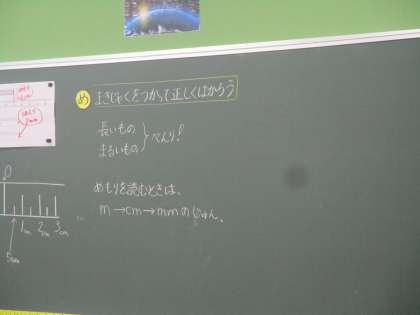 め まきじゃくをつかって正しくはかろう
長いもの
まるいもの
べんり!
めもりを読むときは、
m→cm→mmのじゅん。
0
1cm 2cm 3cm
5mm